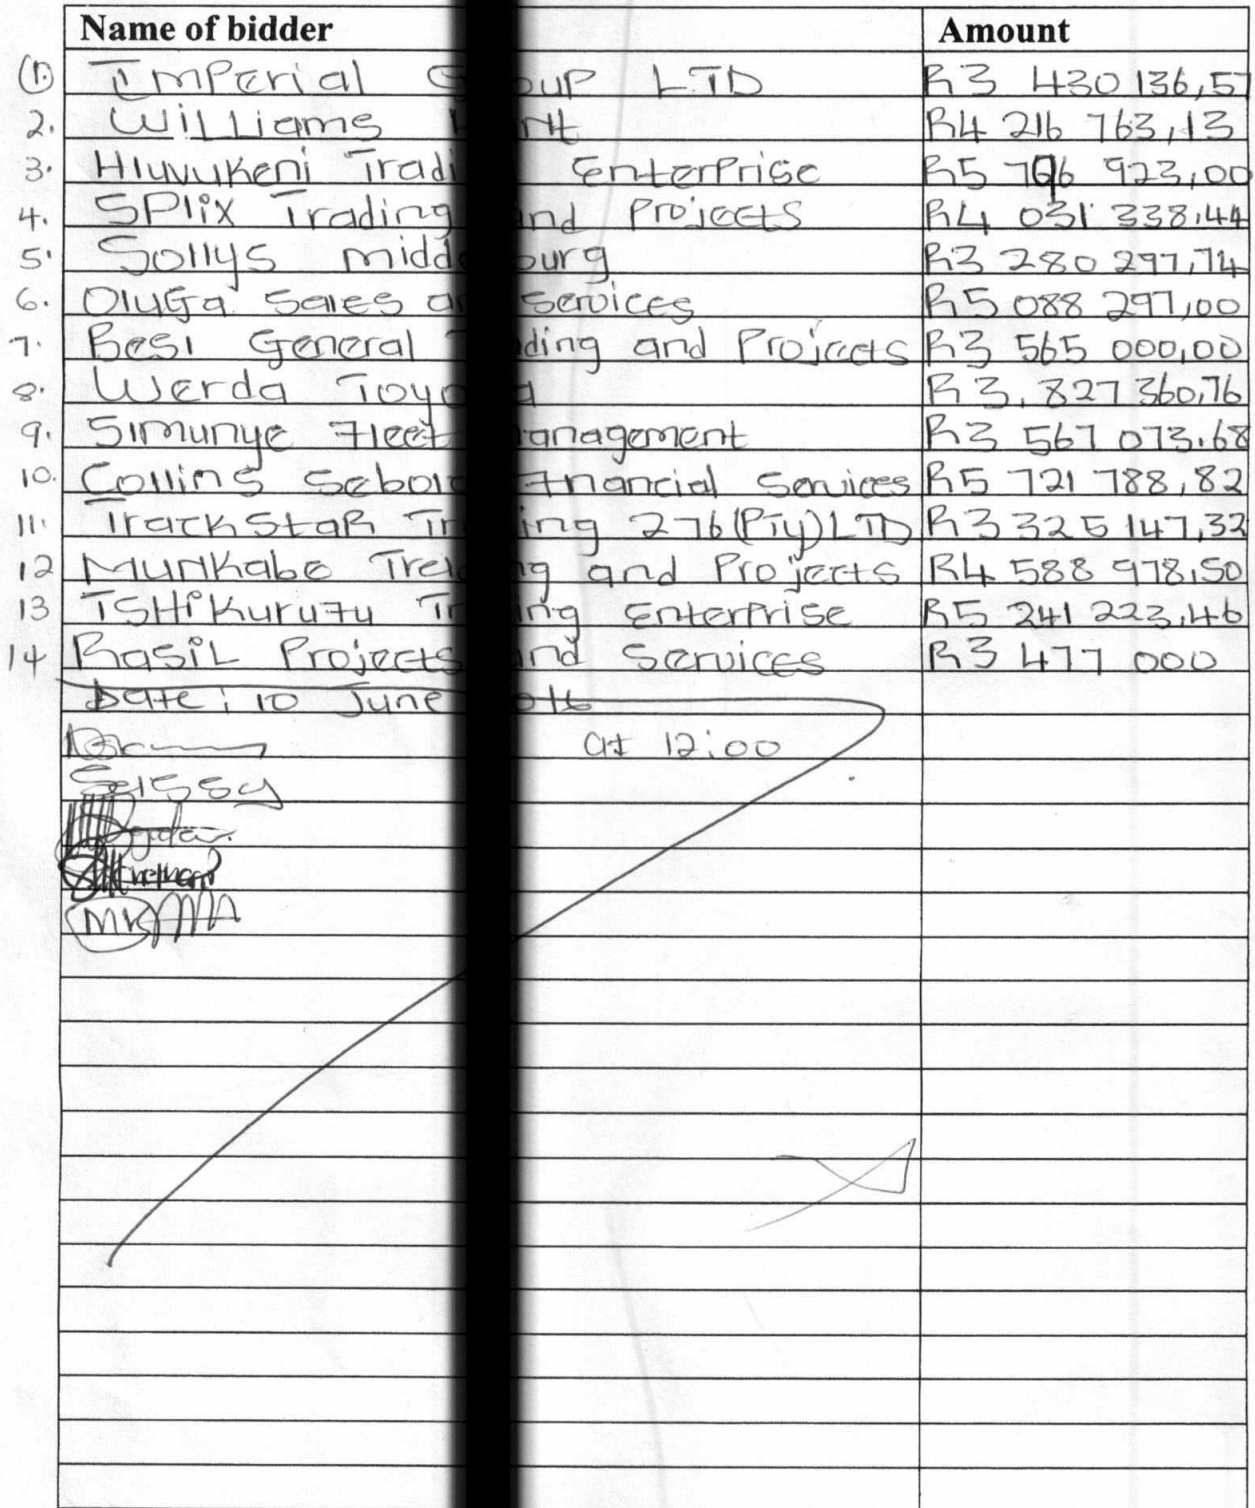 Name of bidder Amount
1. Imperial G oup LTD R3 430 136,57
2. Williams H nt R4 216 763,13
3. Hluvukeni Tradi Enterprise R5 796 923,00
4. Splix Trading and Projects R4 031 338.44
5. Sollys midd burg R3 280 297,74
6. Oluga Sales a Services R5 088 297,00
7. Besi General ding and Projects R3 565 000,00
8. Werda Toyo a R3, 827 360,76
9. Simunye Fleet anagement R3 567 073.68
10. Collins Sebola Financial Services R5 721 788,82
11. TrackStaR Tr ing 276 (Pty) LTD R3 325 147,32
12 Munkabe Tre ng and Projects R4 588 978,50
13 TSHikurufu Tr ing Enterprise R5 241 223,46
14 RasiL Projects and Services R3 477 000
Date: 10 June 016
at 12:00